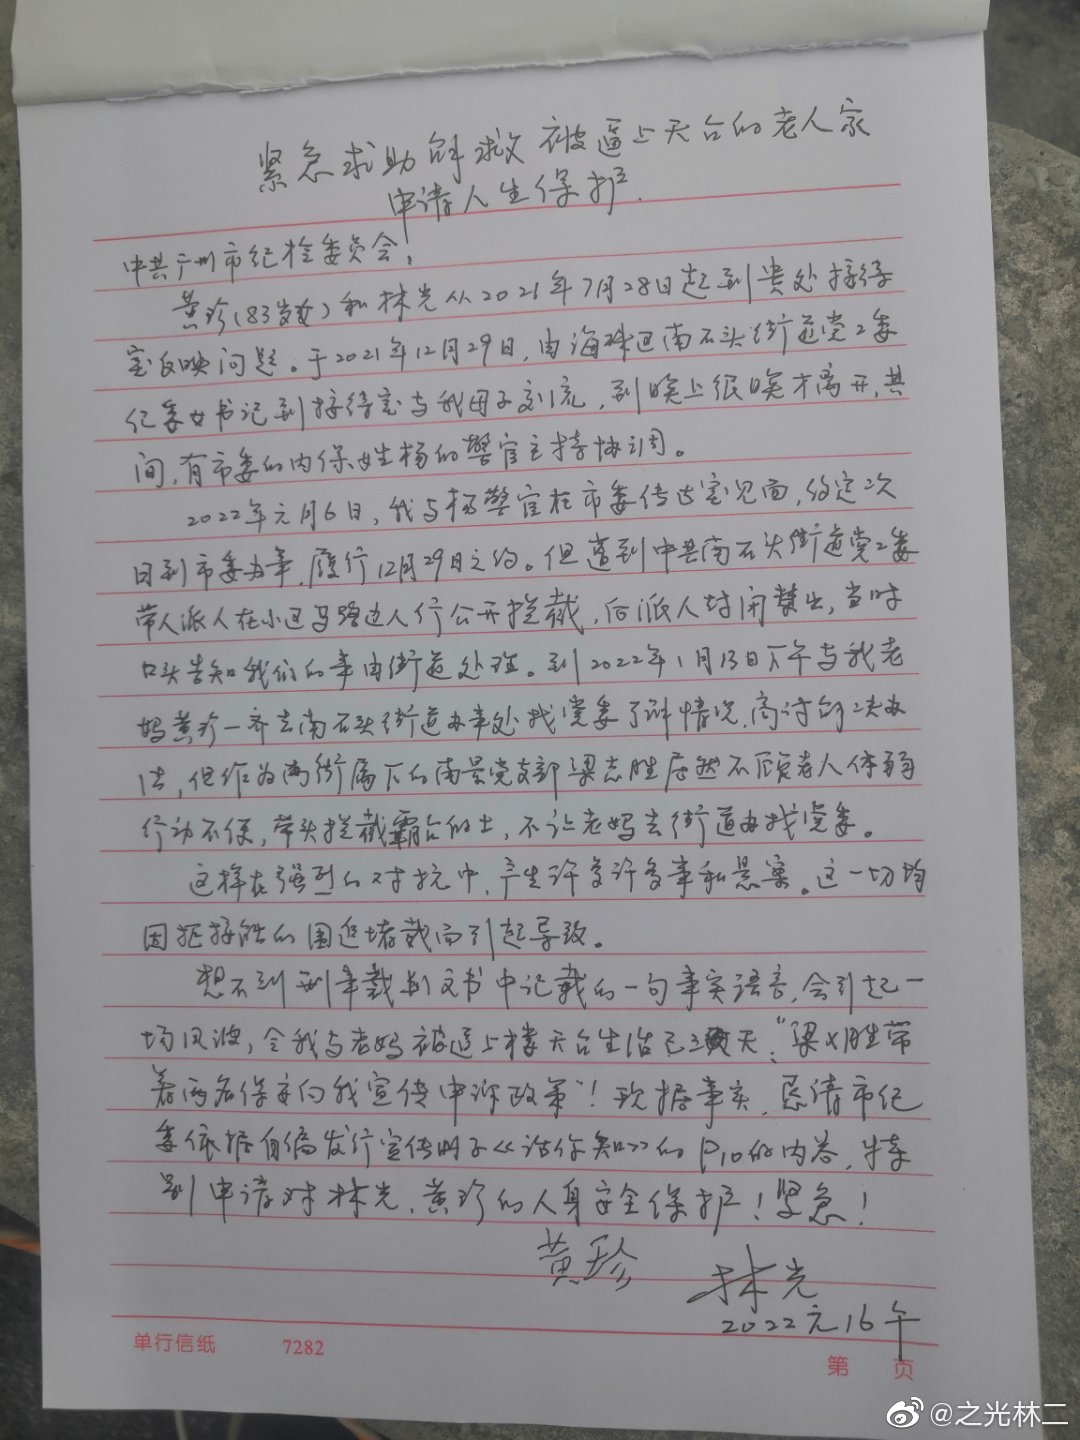 紧急求助解救被逼上天台的老人家
申请人生保护.
中共广州市纪检委员会:
黄珍(83岁女)和林光从2021年7月28日起到贵处接待
室反映问题。于2021年12月29日,由海珠区南石头街道党工委
纪委女书记到接待室与我母子交流,到晚上很晚才离开,其
间,有市委的内保姓杨的警官主持协调。
2022年元月6日,我与杨警官在市委传达室见面,约定次
日到市委办事,履行12月29日之约。但遭到中共南石头街道党工委
带人派人在小区马路边人行公开拦截,后派人封闭禁出,当时
口头告知我们的事由街道处理。到2022年1月13日下午与我老
妈黄珍一齐去南石头街道办事处找党委了解情况,商讨解决办
法,但作为南街属下的南景党支部梁志胜居然不顾老人体弱
行动不便,带头拦截霸台的士,不让老妈去街道办找党委。
这样在强烈的对抗中,产生许多许多事和悬案。这一切均
因拒接触的围追堵截而引起导致。
想不到刑事裁判文书中记载的一句事实语言,会引起一
场风波,令我与老妈被逼上楼天台生活已三天:"梁X胜带
着两名保安向我宣传申诉政策"!现据事实,恳请市纪
委依据自编发行宣传册子《话你知》的P10的内容,特
别申请对林光、黄珍的人身安全保护!紧急!
黄珍 林光
2022元16午
单行信纸 7282
第 页
@之光林二